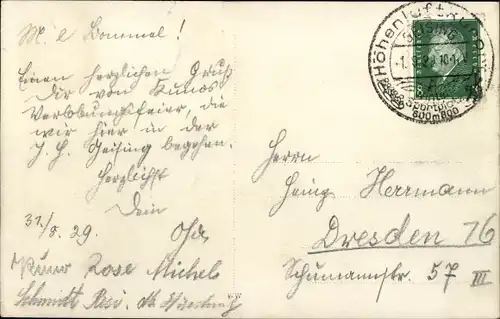 M. l. Bommel!
Einen herzlichen Gruß
Dir von Kunos
Verlobungsfeier, die
wir hier in der
J. H. Geising begehen.
Herzlichst
Dein
31/8. 29.
Rose Michel
Schmidt Resi
Höhenluftk
GEISING
Sportplatz
800m
Herrn
Heinz Herrmann
Dresden 16
Schumannstr. 57 III